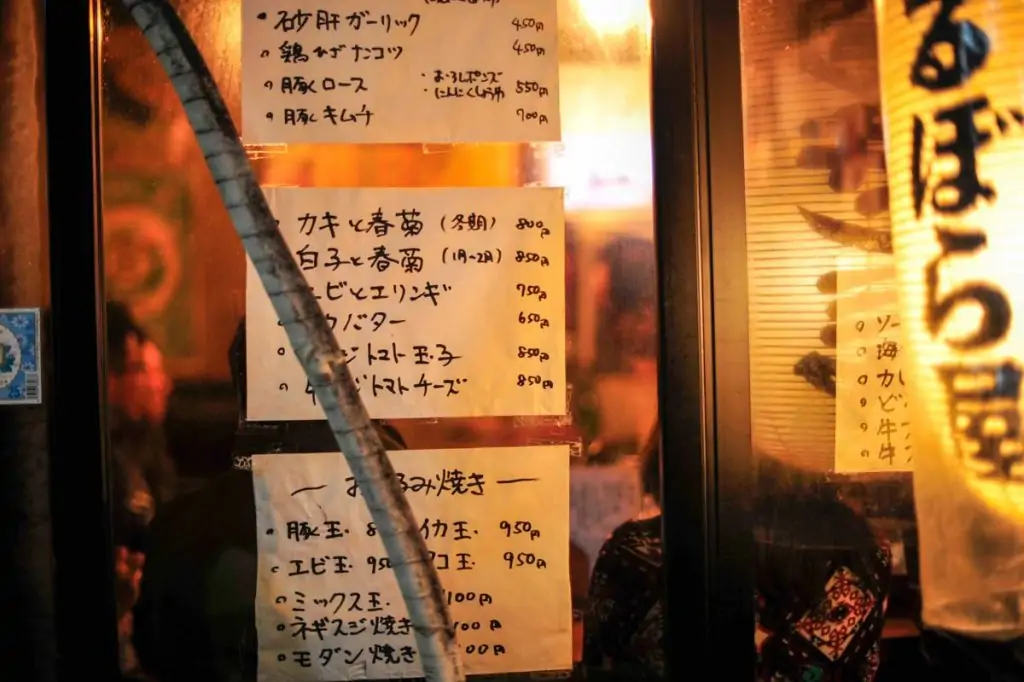 ・砂肝ガーリック 450円
・鶏ひざナンコツ 450円
・豚ロース ・おろしポンズ ・にんにくしょうゆ 550円
・豚キムチ 700円
カキと春菊(冬期) 800円
白子と春菊(1月~2月) 850円
エビとエリンギ 750円
バター 650円
トマト玉子 850円
トマトチーズ 850円
るみ焼き
・豚玉. 8 イカ玉. 950円
・エビ玉. 950 コ玉. 950円
・ミックス玉. 100円
・ネギスジ焼き 100円
・モダン焼き 00円
ソー
海
カレ
ビ
牛
牛
るぼら